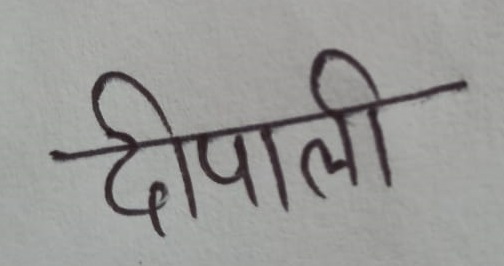 दीपाली